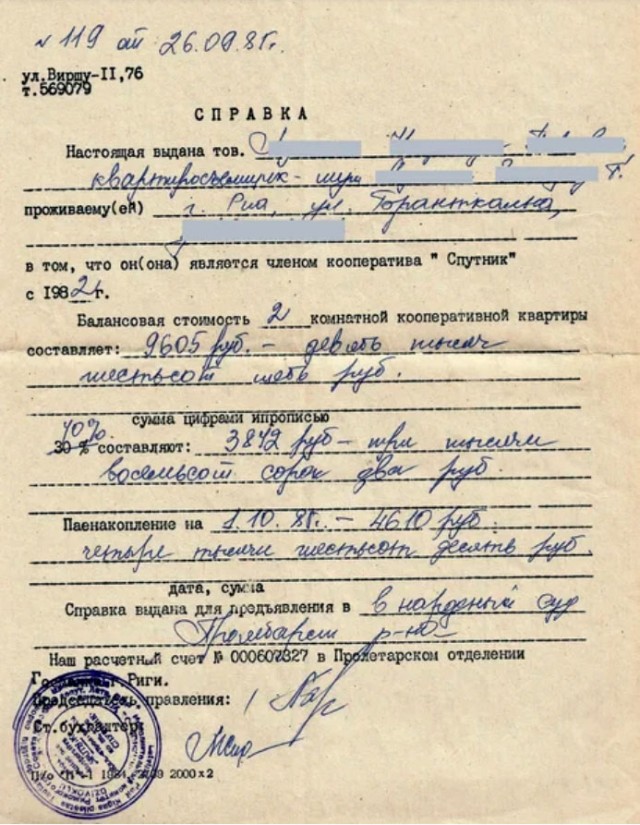 № 119 от 26.09.88г.
ул.Виршу-II,76
т.569079
СПРАВКА
Настоящая выдана тов.
квартиросъемщик-
проживаему(ей) г. Рига, ул.
в том, что он(она) является членом кооператива " Спутник"
с 1982г.
Балансовая стоимость 2 комнатной кооперативной квартиры
составляет: 9605 руб. – девять тысяч
шестьсот пять руб.
сумма цифрами ипрописью
40%
30 % составляют: 3842 руб – три тысячи
восемьсот сорок два руб.
Паенакопление на 1.10.88г. – 4610 руб.
четыре тысячи шестьсот десять руб.
дата, сумма
Справка выдана для предъявления в в народный суд
р-на
Наш расчетный счет № 000607327 в Пролетарском отделении
Риги.
Председатель правления:
Ст.бухгалтер
2000 x 2